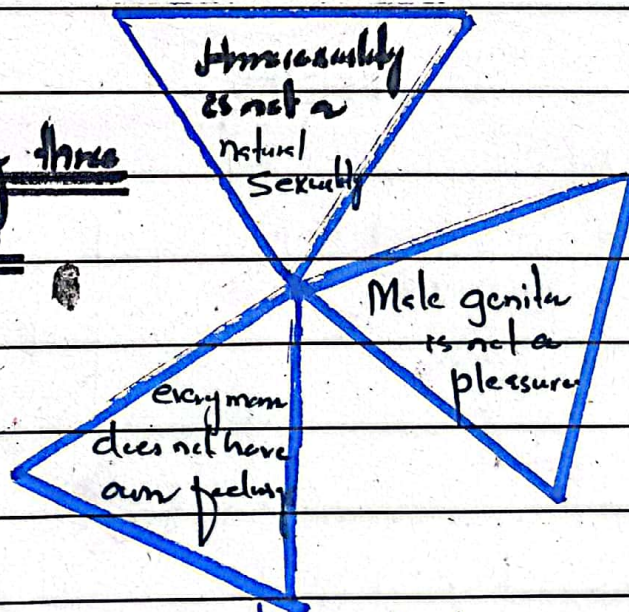 three
Homosexuality
is not a
natural
Sexuality
Male genita
is not a
pleasure
every man
does not have
own feeling